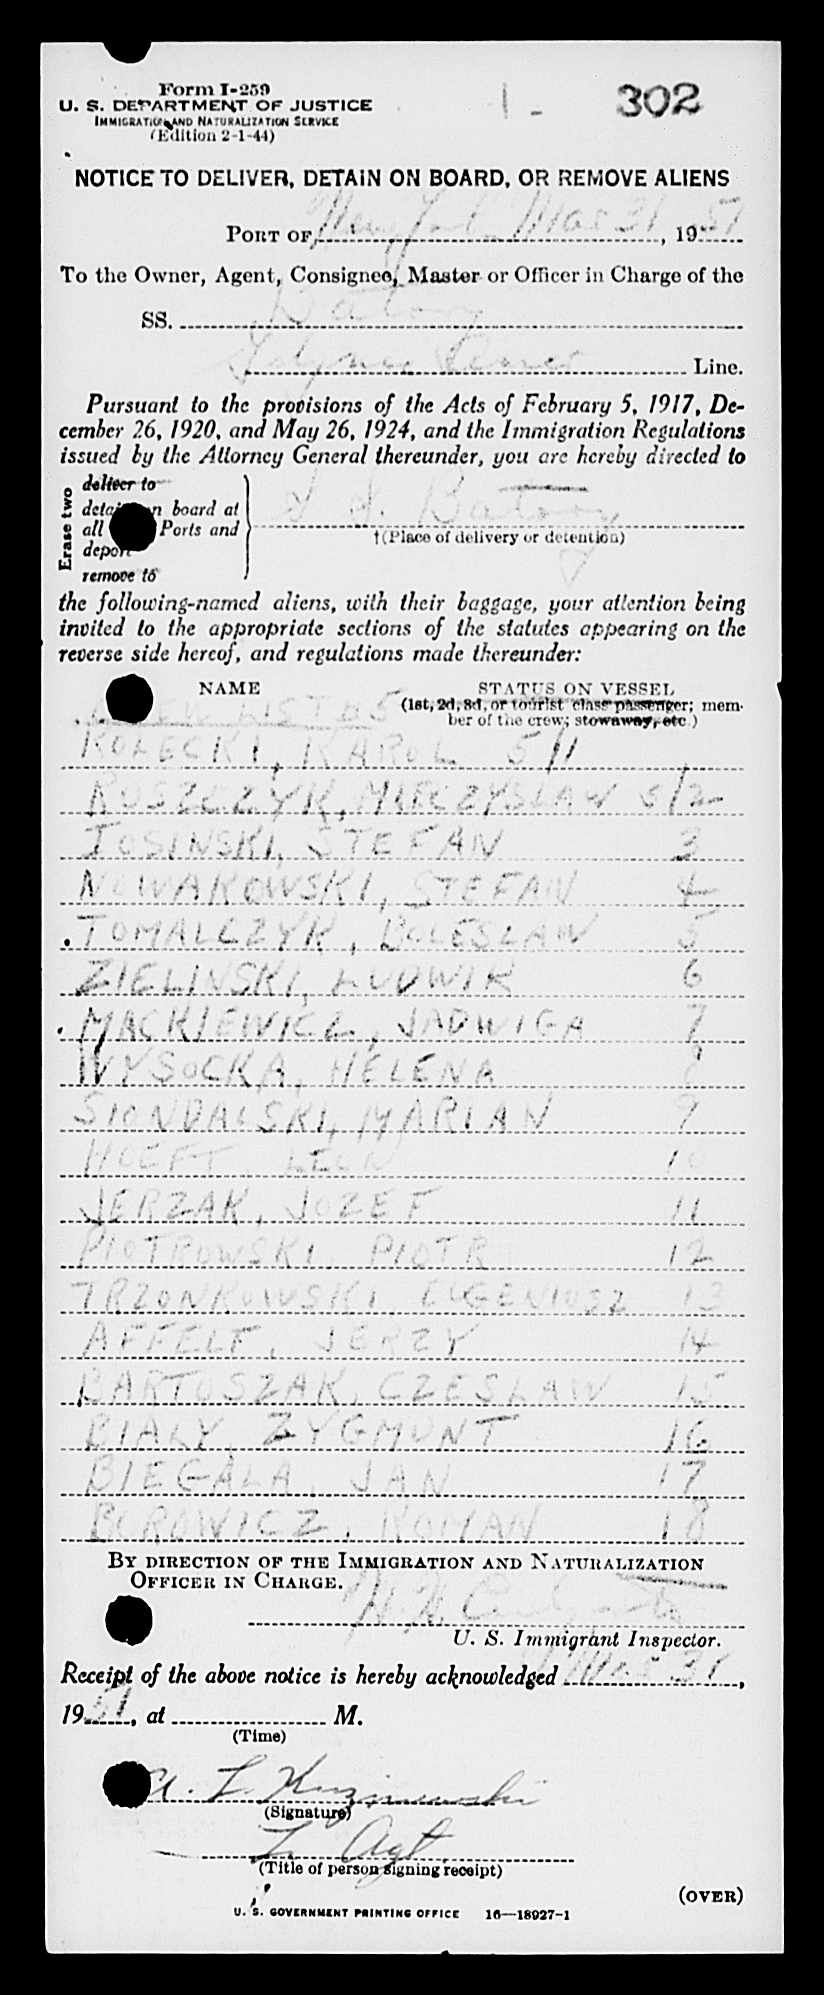 Form I-259
U. S. DEPARTMENT OF JUSTICE
IMMIGRATION AND NATURALIZATION SERVICE
(Edition 2-1-44)
1-
302
NOTICE TO DELIVER, DETAIN ON BOARD, OR REMOVE ALIENS
PORT OF New York Mar 31, 1951
To the Owner, Agent, Consignee, Master or Officer in Charge of the
SS. Batory
Gdynia Line.
Pursuant to the provisions of the Acts of February 5, 1917, De-
cember 26, 1920, and May 26, 1924, and the Immigration Regulations
issued by the Attorney General thereunder, you are hereby directed to
Erase two
deliver to
detain on board at
all Ports and
deport
remove to
S. S. Batory
†(Place of delivery or detention)
the following-named aliens, with their baggage, your attention being
invited to the appropriate sections of the statutes appearing on the
reverse side hereof, and regulations made thereunder:
NAME
STATUS ON VESSEL
(1st, 2d, 3d, or tourist class passenger; mem-
ber of the crew; stowaway, etc.)
CREW LIST
ROLECKI, KAROL 5/1
ROSZCZYK, MIECZYSLAW 5/2
JOSINSKI, STEFAN 3
NOWAKOWSKI, STEFAN 4
TOMALCZYK, BOLESLAW 5
ZIELINSKI, LUDWIK 6
MACKIEWICZ, JADWIGA 7
WYSOCKA, HELENA 8
SIONDALSKI, MARIAN 9
HOEFT, LEON 10
JERZAK, JOZEF 11
PIOTROWSKI, PIOTR 12
TRZONKOWSKI, EUGENIUSZ 13
AFFELT, JERZY 14
BARTOSZAK, CZESLAW 15
BIALY, ZYGMUNT 16
BIEGALA, JAN 17
BOROWICZ, ROMAN 18
BY DIRECTION OF THE IMMIGRATION AND NATURALIZATION
OFFICER IN CHARGE.
U. S. Immigrant Inspector.
Receipt of the above notice is hereby acknowledged Mar 31,
1951, at M.
(Time)
(Signature)
Agt
(Title of person signing receipt)
(OVER)
U. S. GOVERNMENT PRINTING OFFICE 16—18927-1